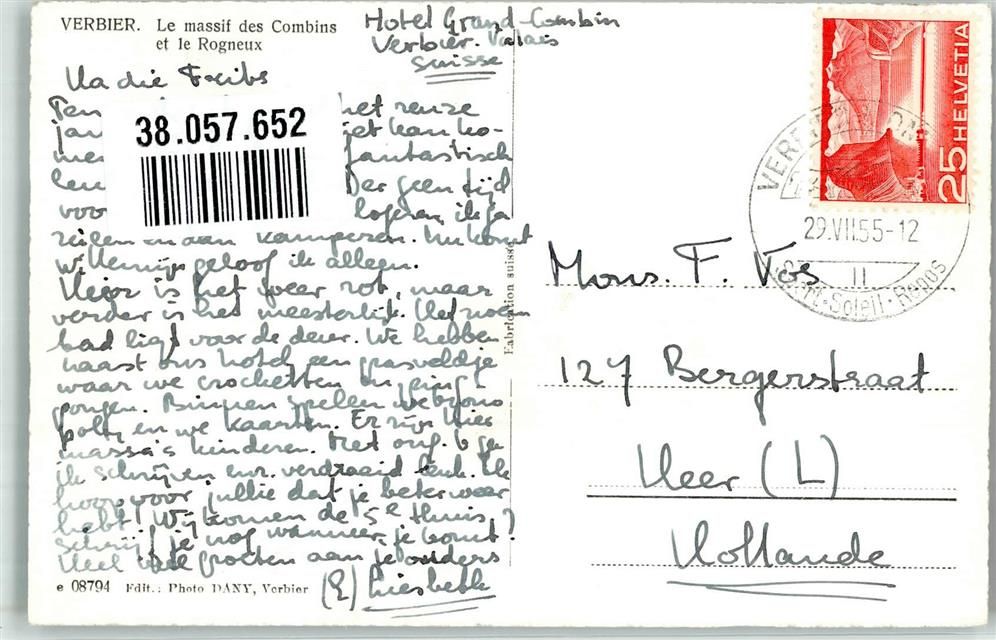 VERBIER. Le massif des Combins
et le Rogneux
Hotel Grand-Combin
Verbier. Valais
Suisse
38.057.652
het reuze
fantastisch
Der geen tijd
voor logeren, ik ga
zeilen en aan kamperen. Nu komt
Willemijn geloof ik alleen.
Hier is het weer rot, maar
verder is het meesterlijk. Het zwem
bad ligt voor de deur. We hebben
naast ons hotel een grasveldje
waar we crocketten en ping
pongen. Binnen spelen we
poly en we kaarten. Er zijn hier
massa's kinderen. Met
ik schrijven enz. verdraaid leuk. Ik
hoop voor jullie dat je beter weer
hebt! Wij komen de 5e thuis,
schrijf je nog wanneer je komt?
Veel groeten aan je ouders
(E) Liesbeth
e 08794 Edit.: Photo DANY, Verbier
Fabrication suisse
HELVETIA
25
VERBIER
29.VII.55-12
II
Sport-Soleil-Repos
Mons. F. Vos
127 Bergerstraat
Heer (L)
Hollande